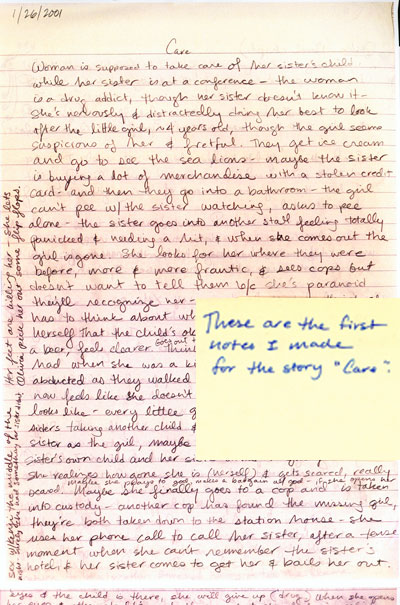 1/26/2001
Care
Woman is supposed to take care of her sister's child
while her sister is at a conference - the woman
is a drug addict, though her sister doesn't know it -
She's nervously & distractedly doing her best to look
after the little girl, ~4 years old, though the girl seems
suspicious of her & fretful. They get ice cream
and go to see the sea lions - maybe the sister
is buying a lot of merchandise with a stolen credit
card - and then they go into a bathroom - the girl
can't pee w/ the sister watching, asks to pee
alone - the sister goes into another stall feeling totally
panicked & needing a hit, & when she comes out the
girl is gone. She looks for her where they were
before, more & more frantic, & sees cops but
doesn't want to tell them b/c she's paranoid
they'll recognize her -
has to think about wh
herself that the child's ok
a beer, feels clearer goes out + think
had when she was a k
abducted as they walked
now feels like she doesn't
looks like - every little g
siders taking another child &
sister as the girl, maybe
sister's own child and her sis
She realizes how gone she is (herself) & gets scared, really
scared. Maybe she finally goes to a cop and is taken
maybe she prays to god, makes a bargain w/ god - if she opens her
into custody - another cop has found the missing girl,
they're both taken down to the station house - she
uses her phone call to call her sister, after a tense
moment when she can't remember the sister's
hotel, & her sister comes to get her & bails her out.
eyes & the child is there, she will give up (drug). When she opens
Her feet are killing her - she lets
Olivia pick her out some flip flops.
These are the first
notes I made
for the story "Care".